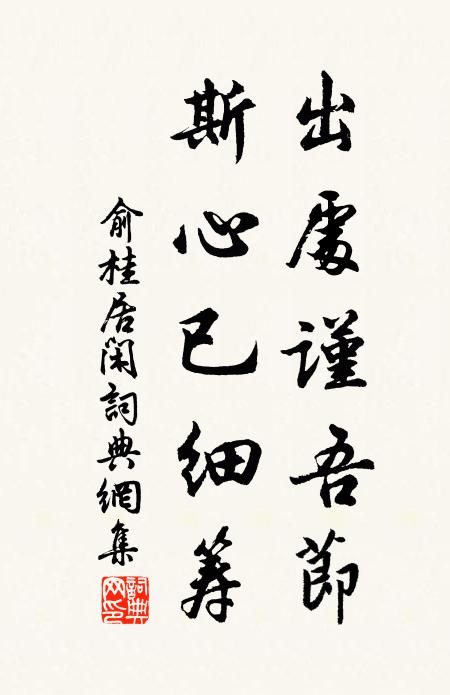 出處謹吾節
斯心已細筹
俞桂居閑詞典網集
詞典網印